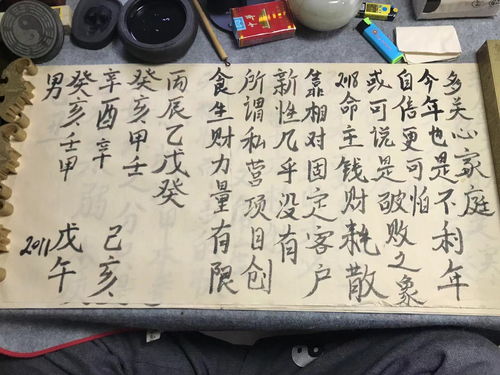 男
癸亥壬甲
2011戊午
辛酉辛
己亥
癸亥甲壬
丙辰乙戊癸
食生财力量有限
所谓私营项目创
新性几乎没有
靠相对固定客户
2018命主钱财耗散
或可说是破败之象
自信更可怕
今年也是不利年
多关心家庭